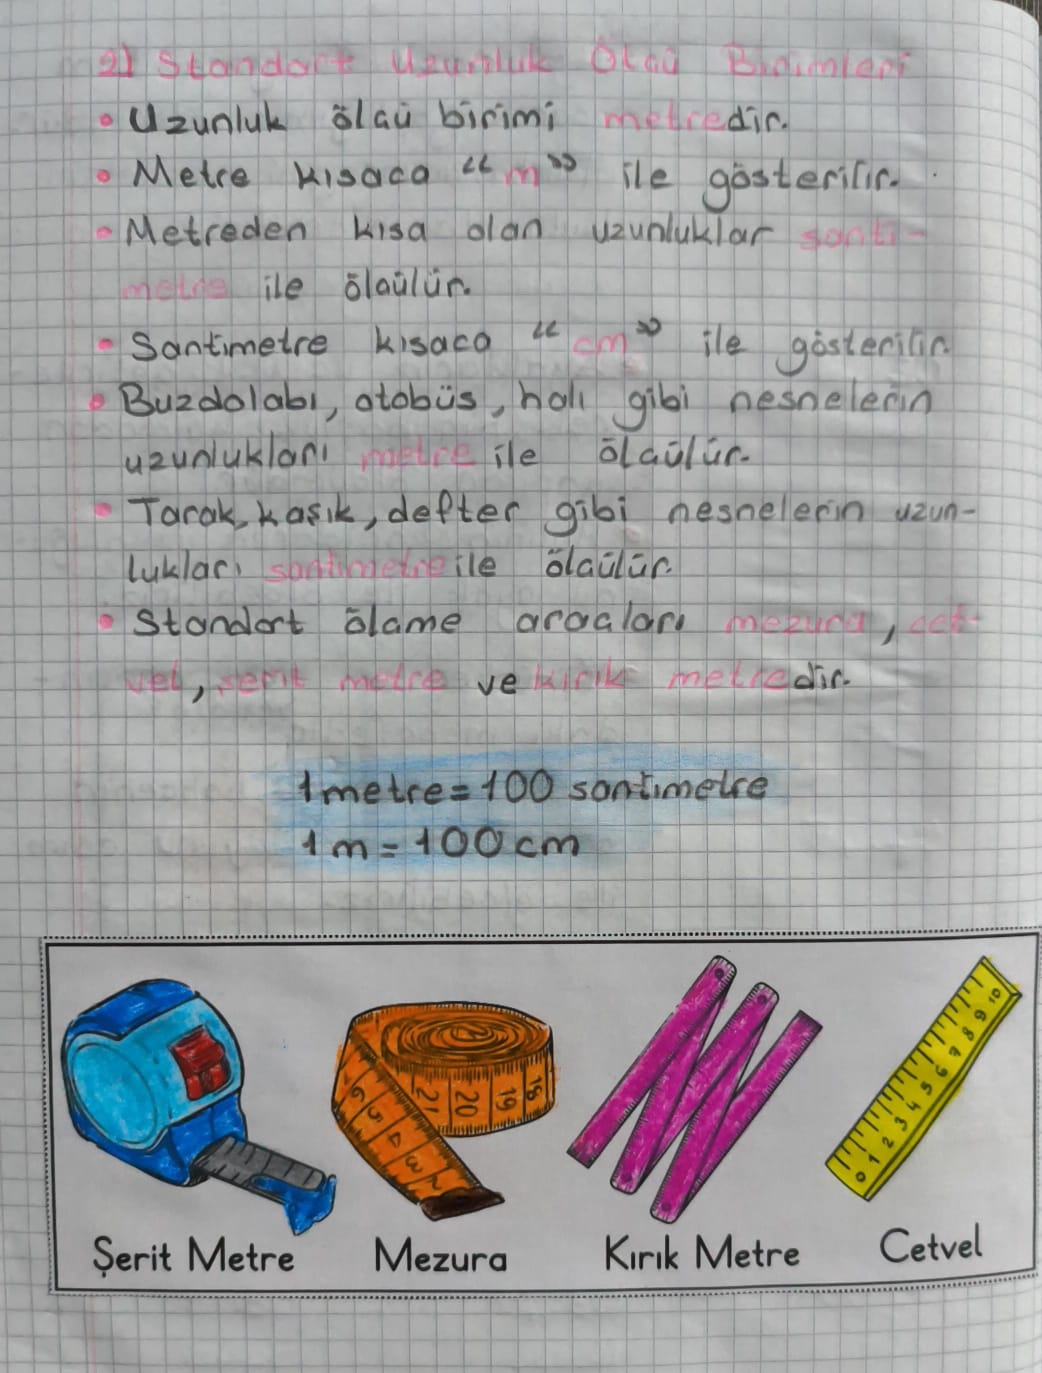 2) Standart Uzunluk Ölçü Birimleri
• Uzunluk ölçü birimi metredir.
• Metre kısaca "m" ile gösterilir.
• Metreden kısa olan uzunluklar santi-
metre ile ölçülür.
• Santimetre kısaca "cm" ile gösterilir.
• Buzdolabı, otobüs, halı gibi nesnelerin
uzunlukları metre ile ölçülür.
• Tarak, kaşık, defter gibi nesnelerin uzun-
lukları santimetre ile ölçülür.
• Standart ölçme araçları mezura, cet-
vel, şerit metre ve kırık metredir.
1 metre = 100 santimetre
1 m = 100 cm
6 5 4 3 2 21 20 19 18
0 1 2 3 4 5 6 7 8 9 10
Şerit Metre Mezura Kırık Metre Cetvel